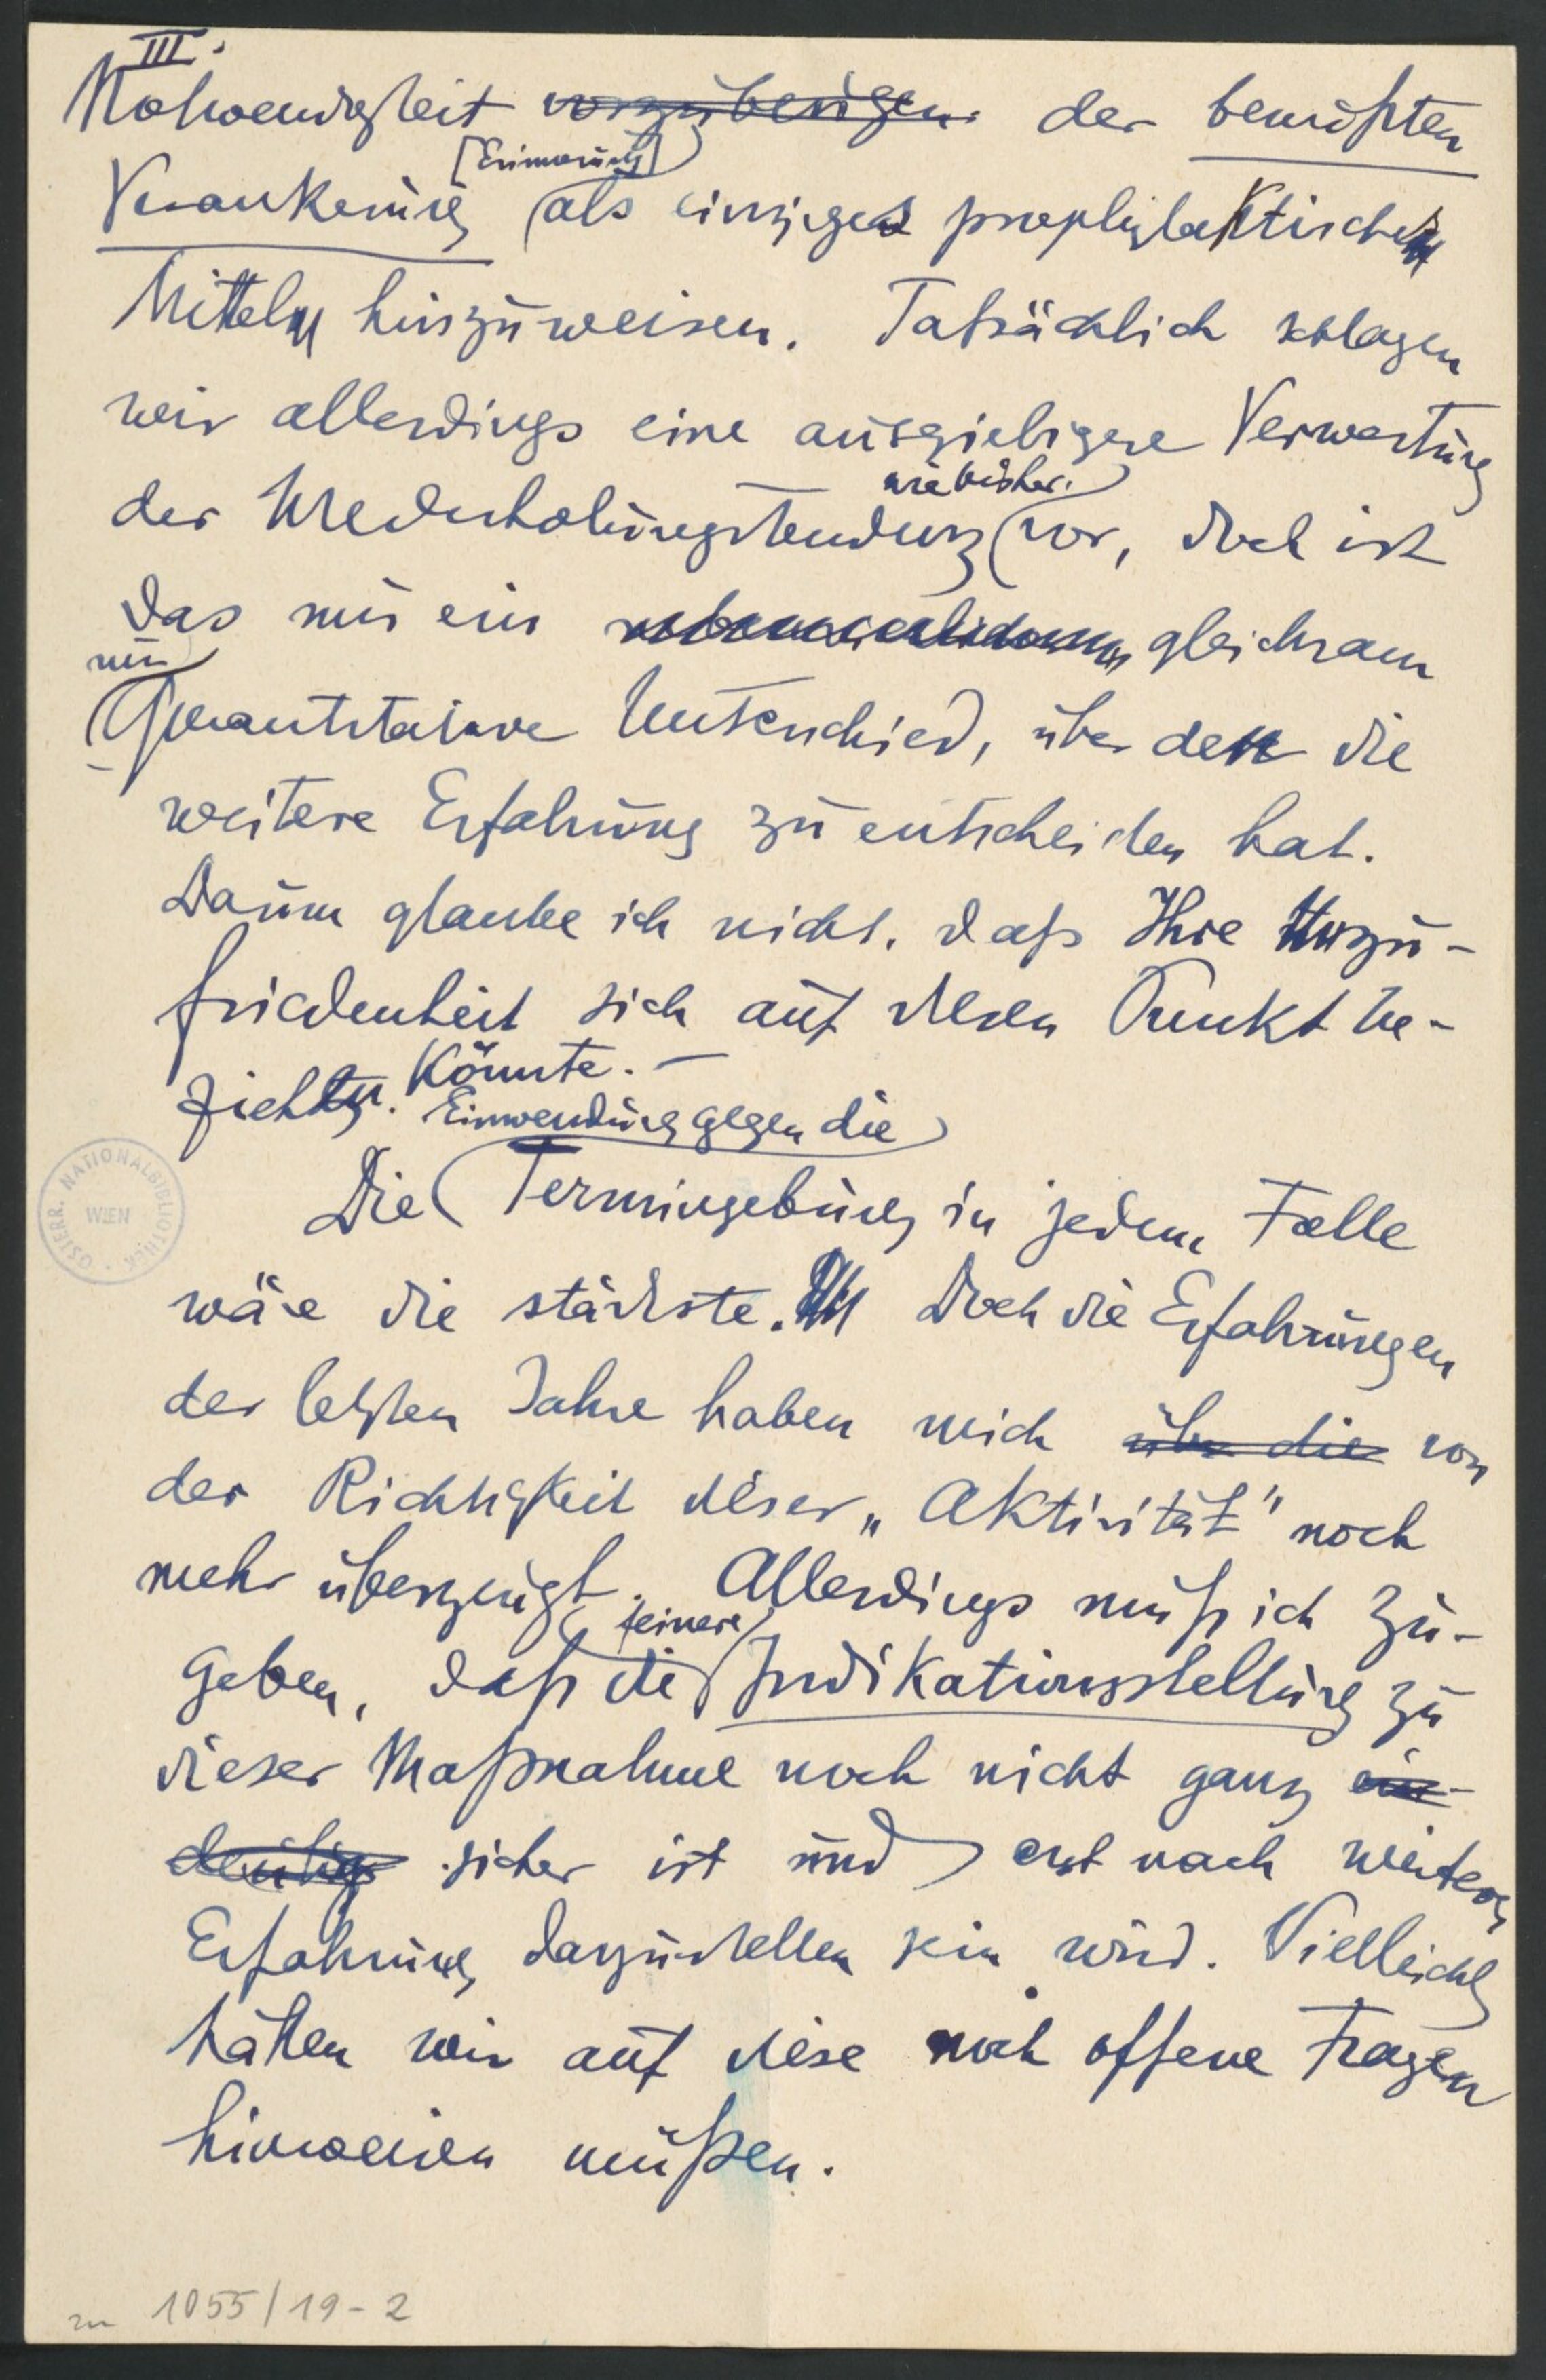 III.
Notwendigkeit der bewußten
[Erinnerung]
Verankerung als einziges prophylaktisches
Mittel hinzuweisen. Tatsächlich schlagen
wir allerdings eine ausgiebigere Verwertung
wie bisher.
der Wiederholungstendenz vor, doch ist
das nur ein gleichsam
nur
quantitativer Unterschied, über den die
weitere Erfahrung zu entscheiden hat.
Darum glaube ich nicht, daß Ihre Unzu-
friedenheit sich auf diesen Punkt be-
ziehen könnte. —
Einwendung gegen die
Die Termingebung in jedem Falle
wäre die stärkste. Doch die Erfahrungen
der letzten Jahre haben mich über die von
der Richtigkeit dieser „Aktivität" noch
mehr überzeugt. Allerdings muß ich zu-
feinere
geben, daß die Indikationsstellung zu
dieser Maßnahme noch nicht ganz ein-
deutig sicher ist und erst nach weiterer
Erfahrung darzustellen sein wird. Vielleicht
hätten wir auf diese noch offene Fragen
hinweisen müßen.
ÖSTERR. NATIONALBIBLIOTHEK
WIEN
zu 1055/19-2